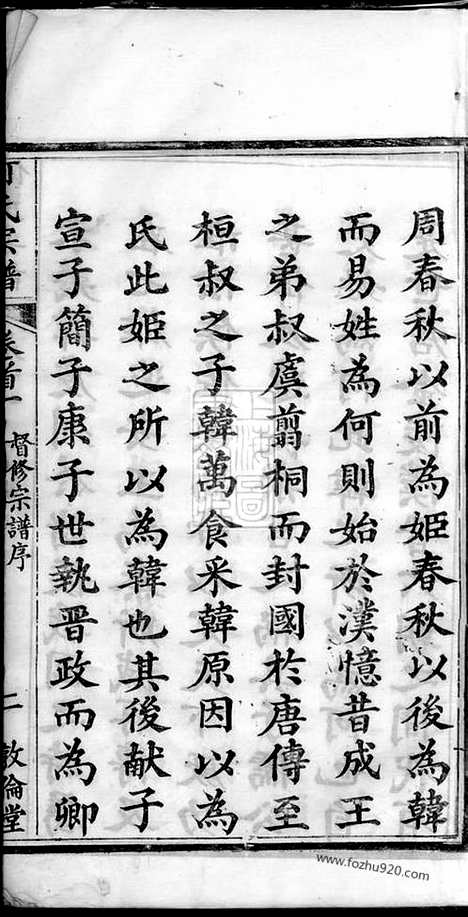 周春秋以前為姬春秋以後為韓
而易姓為何則始於漢憶昔成王
之弟叔虞翦桐而封國於唐傳至
桓叔之子韓萬食采韓原因以為
氏此姬之所以為韓也其後献子
宣子簡子康子世執晋政而為卿
何氏宗譜
卷首一
督修宗譜序
二
敦倫堂
www.fozhu920.com